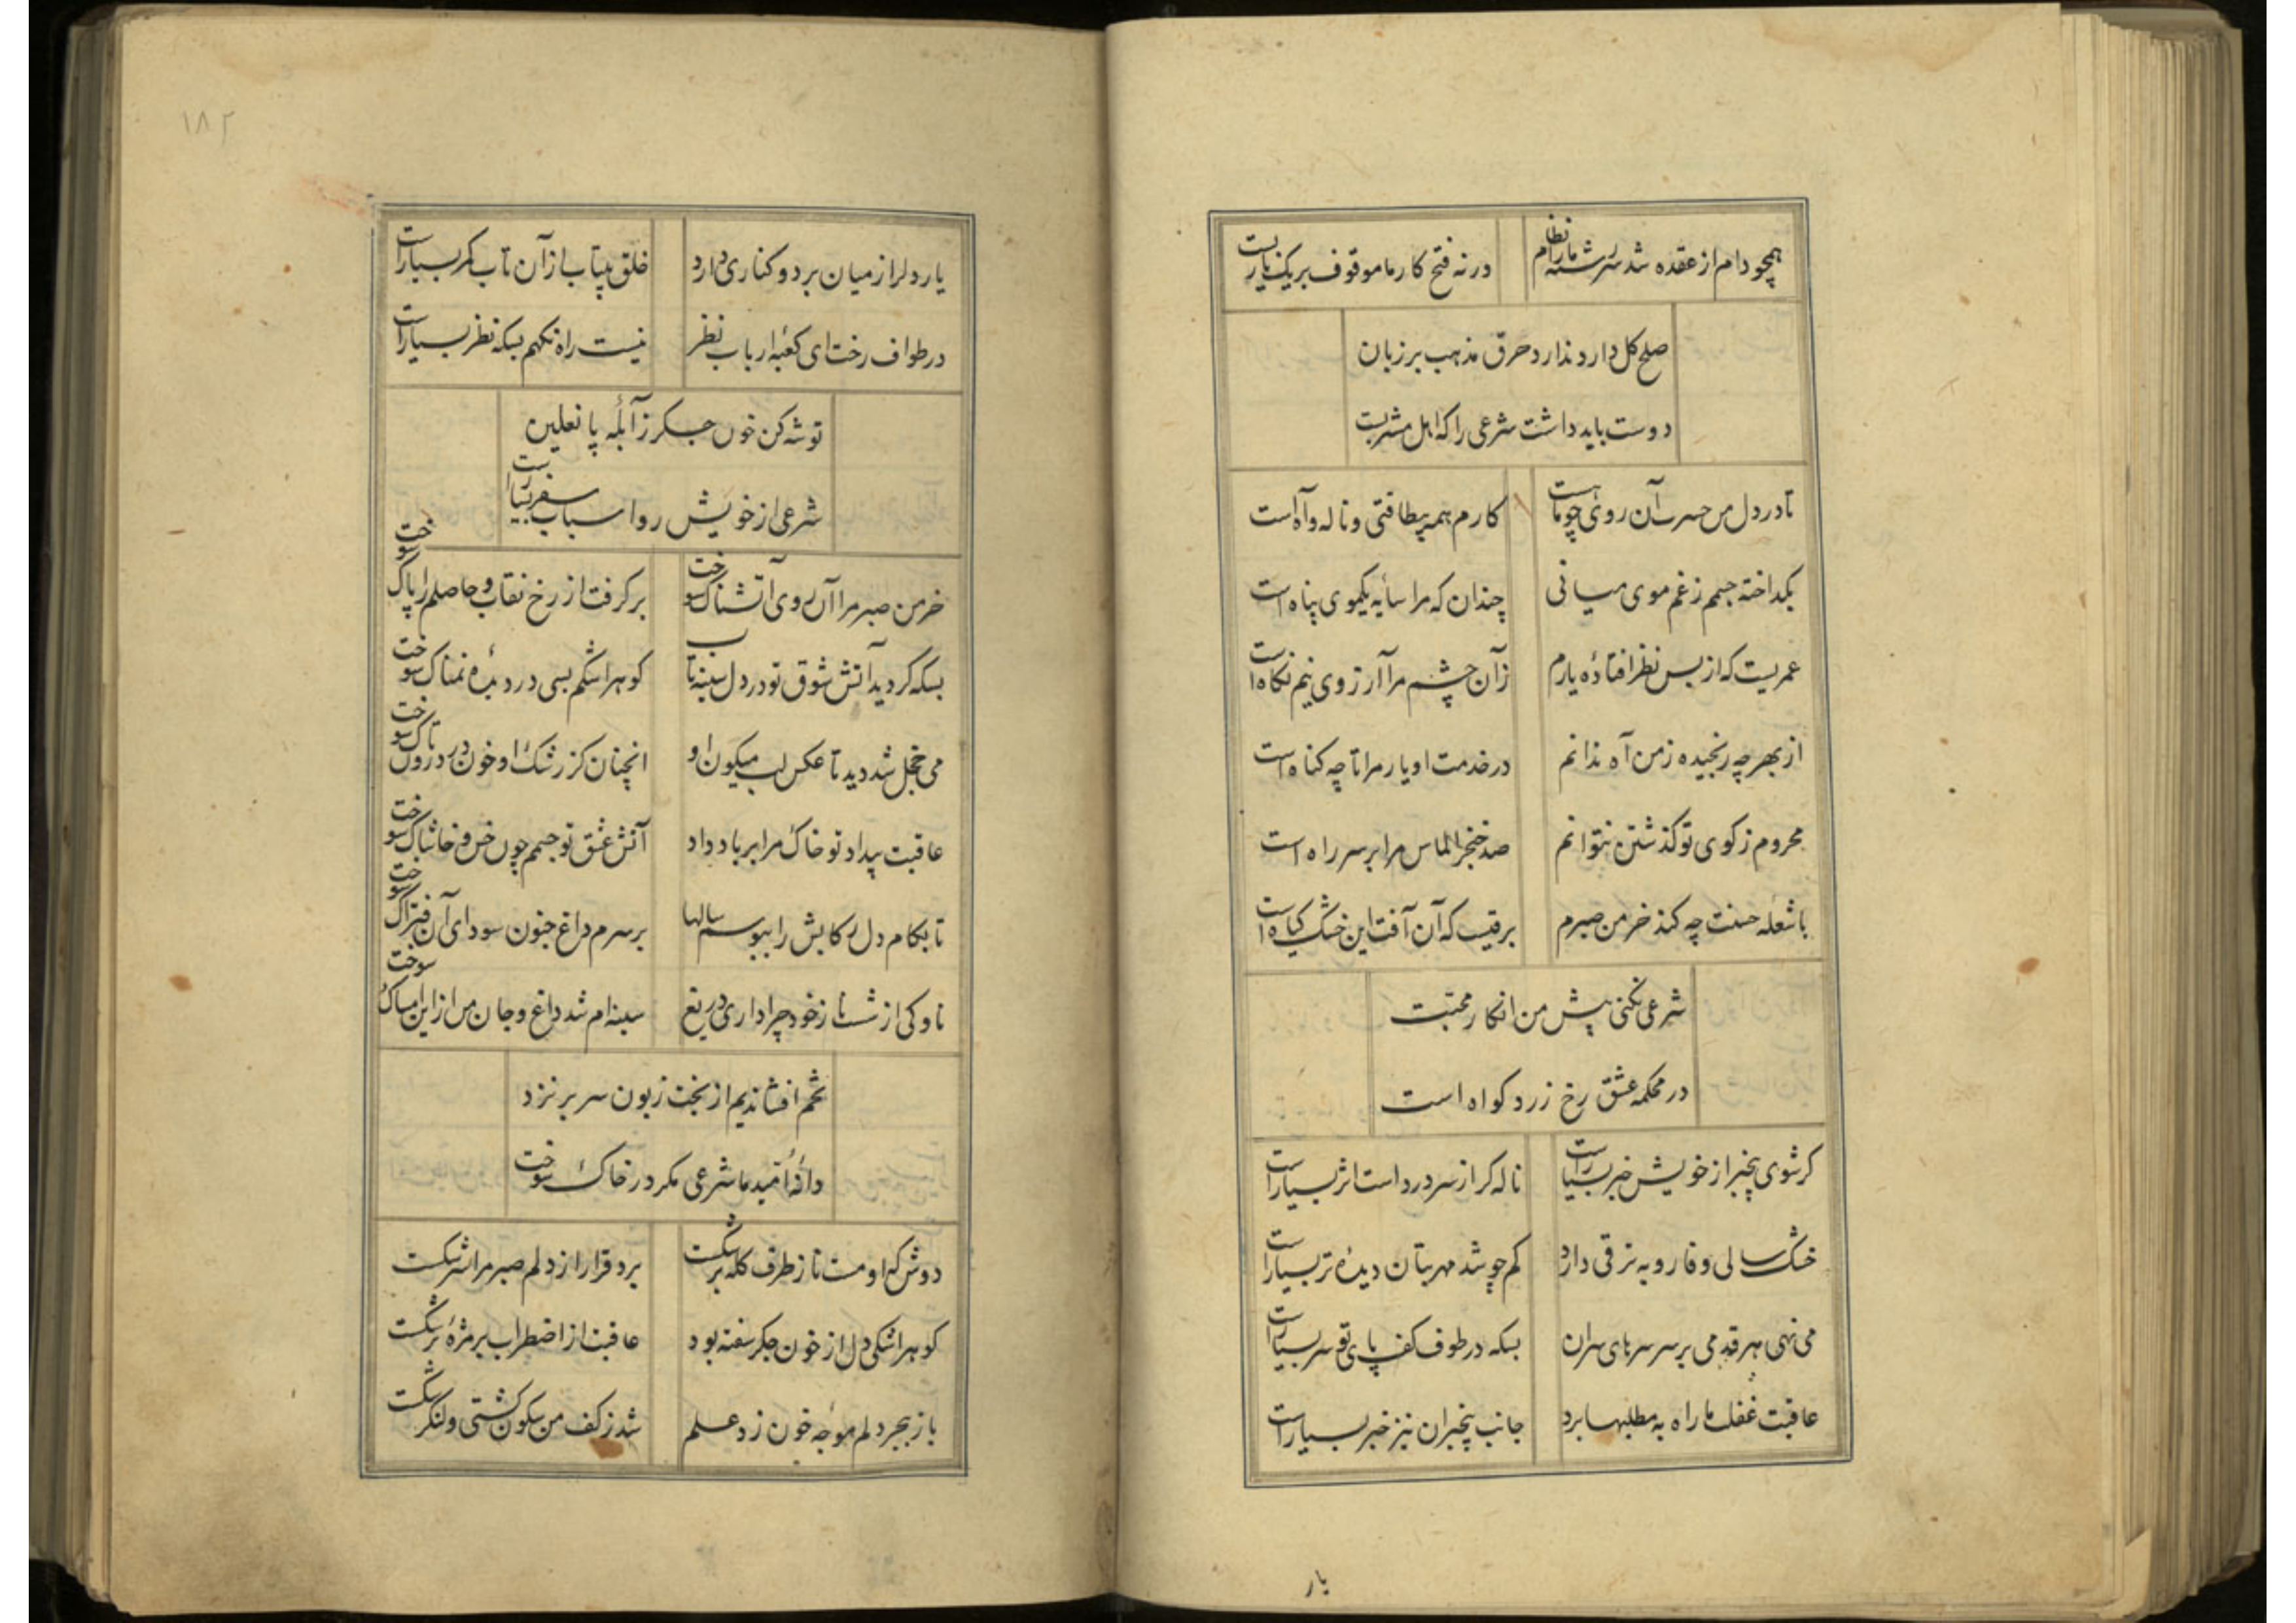 همچو دام از عقده شد سررشته ما را نظام
ورنه فتح کار ما موقوف بر یک یاربست
صلح کل دارد ندارد حرق مذهب بر زبان
دوست باید داشت شرعی را که اهل مشربست
تا در دل من حسرت آن روی چو ماهست
کارم همه بیطاقتی و ناله و آه است
بکداخته جسمم ز غم موی میانی
چندان که مرا سایه یکموی پناه است
عمریست که از بس نظر افتاده یارم
زآن چشم مرا آرزوی نیم نکاه است
از بهر چه رنجیده ز من آه ندانم
در خدمت او یار مرا تا چه کناه است
محروم ز کوی تو کذشتن نتوانم
صد خنجر الماس مرا بر سر راه است
با شعله حسنت چه کند خرمن صبرم
برقیست که آن آفت این خشک کیاه است
شرعی نکنی پیش من انکار محبت
در محکمه عشق رخ زرد کواه است
کر شوی بیخبر از خویش خبر بسیار است
ناله کر از سر درد است اثر بسیار است
خشک سالی وفا رو به ترقی دارد
کم چو شد مهر بتان دیده تر بسیار است
می نهی هر قدمی بر سر سرهای سران
بسکه در طوف کف پای تو سر بسیار است
عاقبت غفلت ما راه به مطلبها برد
جانب بیخبران نیز خبر بسیار است
یار
۱۸۲
یار دلرا ز میان برد و کناری دارد
خلق بیتاب از آن تاب کمر بسیار است
در طواف رخت ای کعبه ارباب نظر
نیست راه نکهم بسکه نظر بسیار است
توشه کن خون جکر ز آبله پا نعلین
شرعی از خویش رو اسباب سفر بسیار است
خرمن صبر مرا آن روی آتشناک سوخت
برکرفت از رخ نقاب و حاصلم را پاک سوخت
بسکه کردید آتش شوق تو در دل سینه تاب
کوهر اشکم بسی در دیده نمناک سوخت
می خجل شد دید تا عکس لب میکون او
انچنان کز رشک او خون در درون تاک سوخت
عاقبت بیداد تو خاک مرا بر باد داد
آتش عشق تو جسمم چون خس و خاشاک سوخت
تا بکام دل رکابش را ببوسم سالها
بر سرم داغ جنون سودای آن فتراک سوخت
ناوکی از شست ناز خود چرا داری دریغ
سینه ام شد داغ و جان من از این امساک سوخت
تخم افشاندیم از بخت زبون سر بر نزد
دانه امید ما شرعی مکر در خاک سوخت
دوش که او مست ناز طرف کله بر شکست
برد قرار از دلم صبر مرا شکست
کوهر اشکی دل از خون جکر سفته بود
عاقبت از اضطراب بر مژه تر شکست
باز ببحر دلم موجه خون زد علم
شد ز کف من سکون کشتی و لنکر شکست